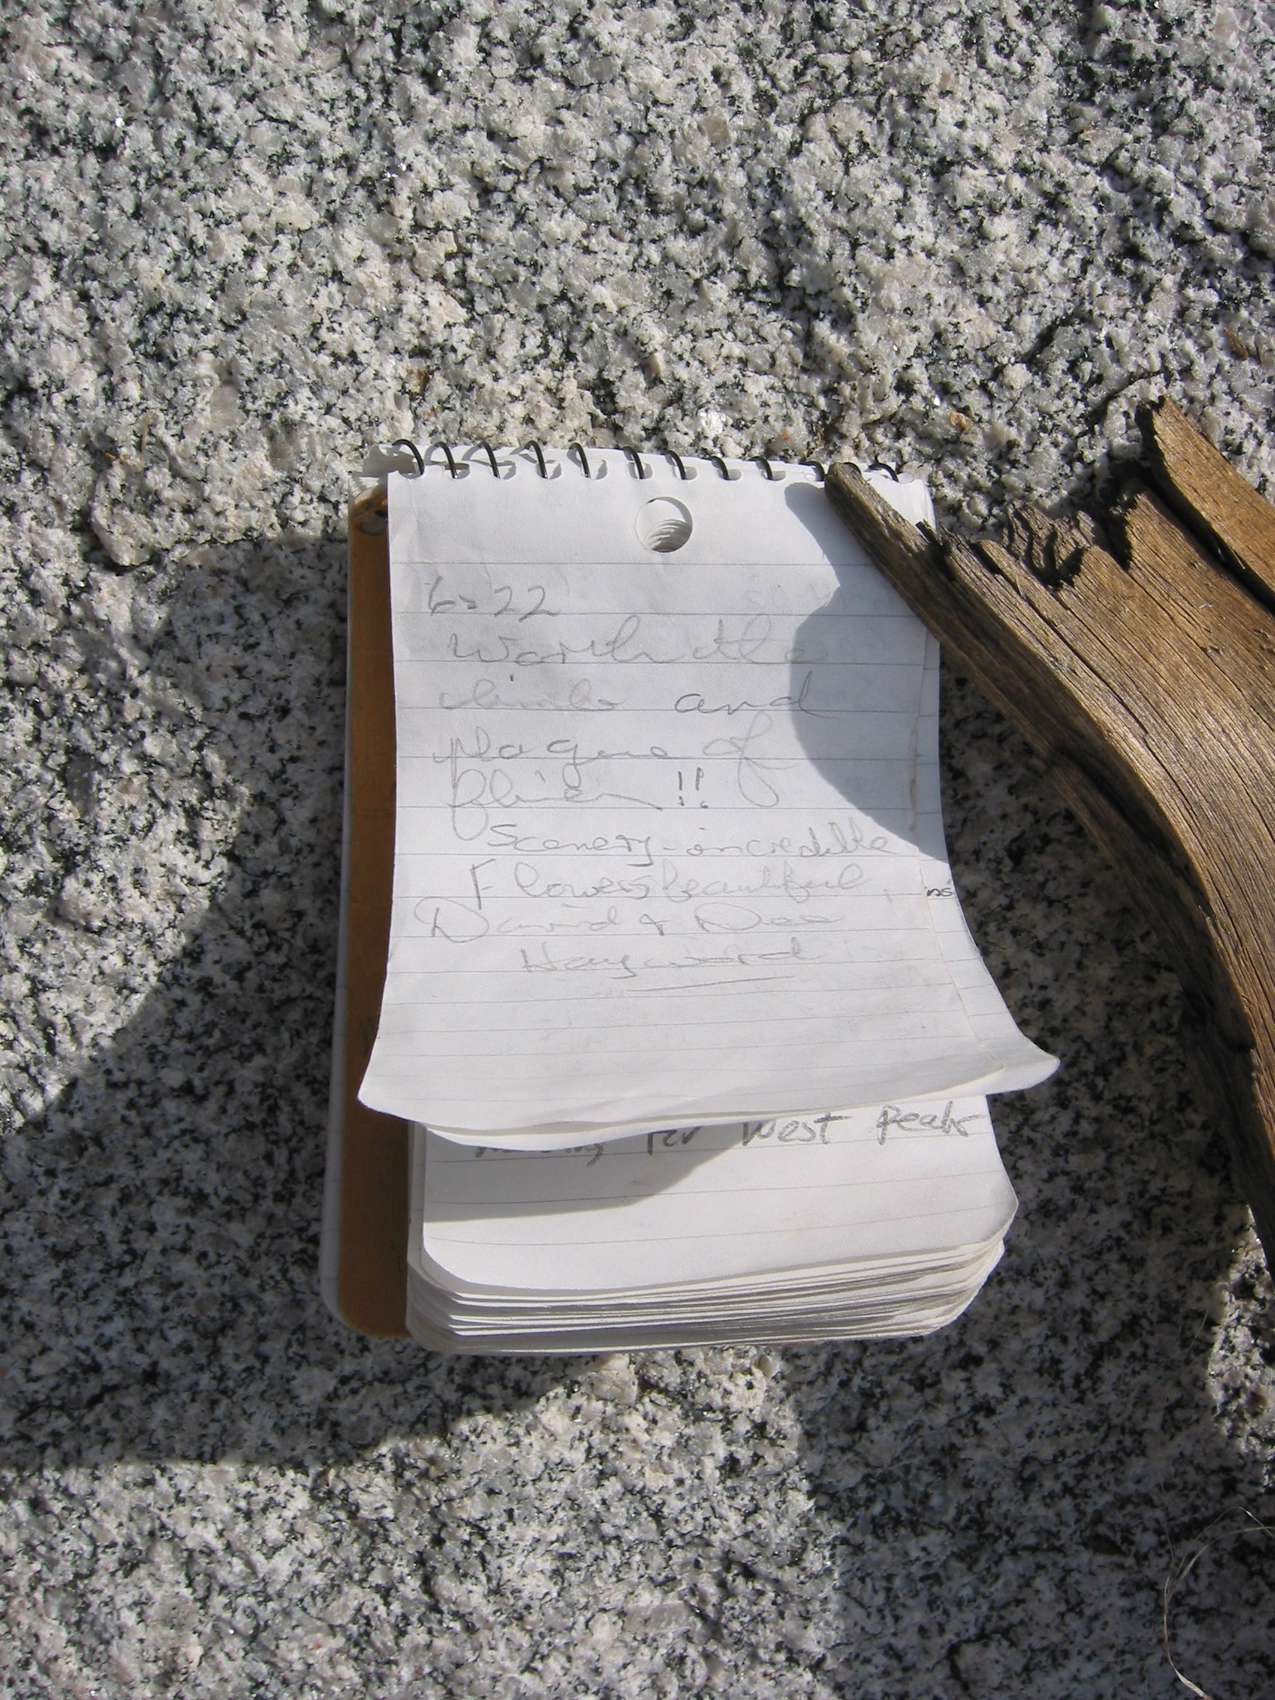 6-22
Worth the
climb and
plague of
flies!!
Scenery-incredible
Flowers beautiful,
David + Dee
Hayward
ns
for West peak